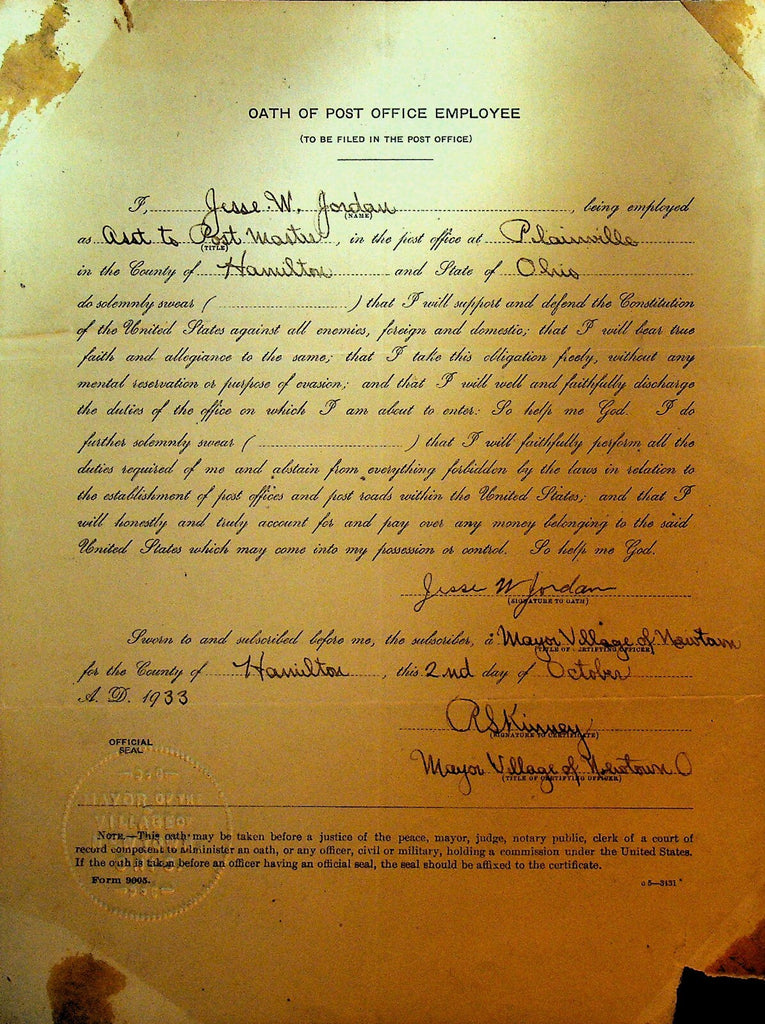 OATH OF POST OFFICE EMPLOYEE
(TO BE FILED IN THE POST OFFICE)
I, Jesse W. Jordan, being employed
(NAME)
as Asst to Post Master, in the post office at Plainville
(TITLE)
in the County of Hamilton and State of Ohio
do solemnly swear ( ) that I will support and defend the Constitution
of the United States against all enemies, foreign and domestic; that I will bear true
faith and allegiance to the same; that I take this obligation freely, without any
mental reservation or purpose of evasion; and that I will well and faithfully discharge
the duties of the office on which I am about to enter: So help me God. I do
further solemnly swear ( ) that I will faithfully perform all the
duties required of me and abstain from everything forbidden by the laws in relation to
the establishment of post offices and post roads within the United States; and that I
will honestly and truly account for and pay over any money belonging to the said
United States which may come into my possession or control. So help me God.
Jesse W Jordan
(SIGNATURE TO OATH)
Sworn to and subscribed before me, the subscriber, a Mayor Village of Newtown
(TITLE OF CERTIFYING OFFICER)
for the County of Hamilton, this 2nd day of October
A. D. 1933
RS Kinney
(SIGNATURE TO CERTIFICATE)
OFFICIAL
SEAL
Mayor Village of Newtown O
(TITLE OF CERTIFYING OFFICER)
NOTE.—This oath may be taken before a justice of the peace, mayor, judge, notary public, clerk of a court of
record competent to administer an oath, or any officer, civil or military, holding a commission under the United States.
If the oath is taken before an officer having an official seal, the seal should be affixed to the certificate.
Form 9005.
c5—3131